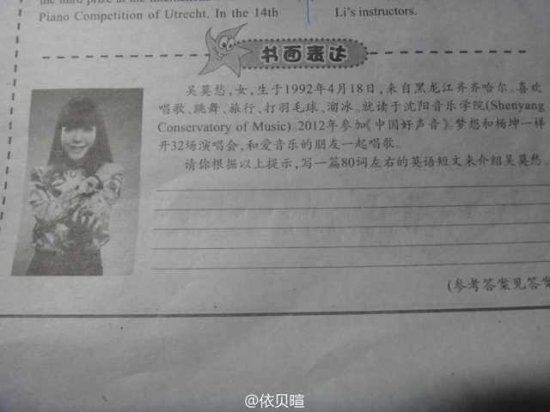 Piano Competition of Utrecht. In the 14th
Li's instructors.
书面表达
吴莫愁,女,生于1992年4月18日,来自黑龙江齐齐哈尔。喜欢
唱歌、跳舞、旅行、打羽毛球、溜冰。就读于沈阳音乐学院(Shenyang
Conservatory of Music) 2012年参加《中国好声音》。梦想和杨坤一样
开32场演唱会,和爱音乐的朋友一起唱歌。
请你根据以上提示,写一篇80词左右的英语短文来介绍吴莫愁
(参考答案见答案
@依贝暄